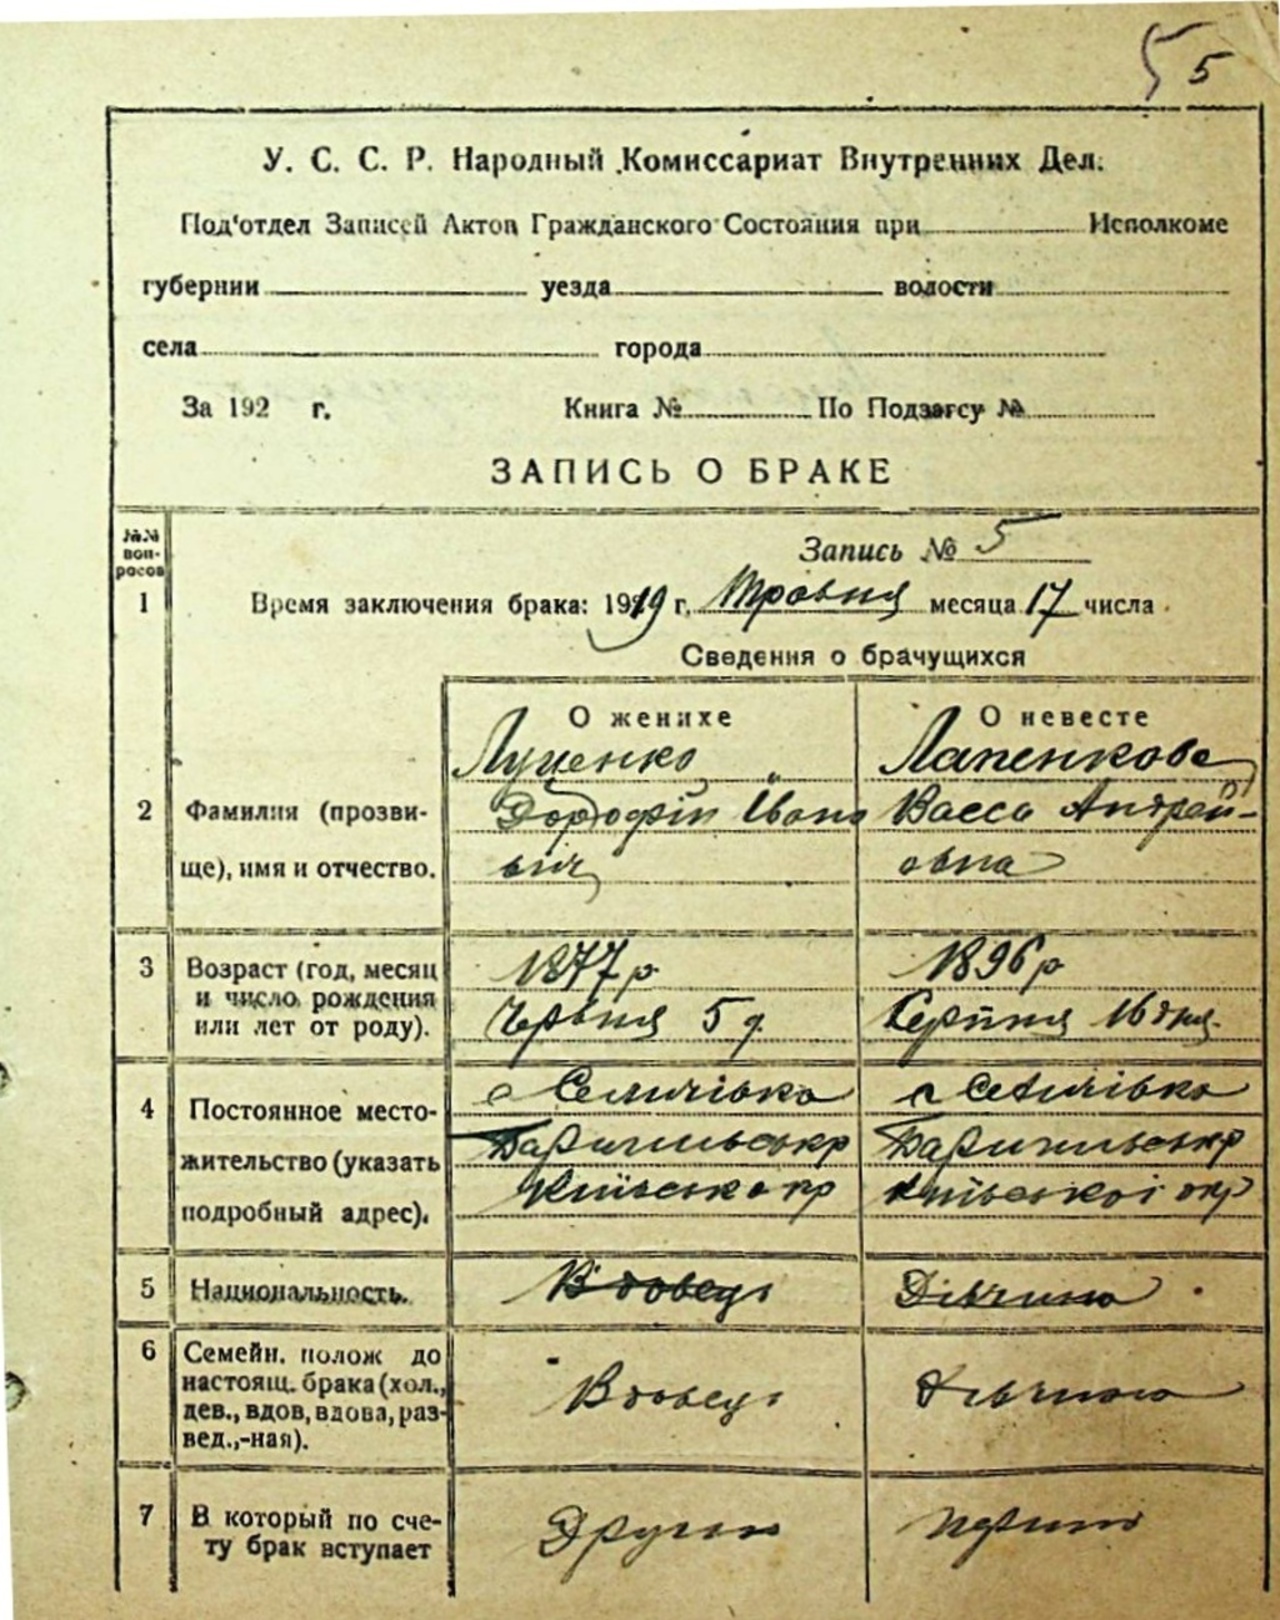 5 5
У. С. С. Р. Народный Комиссариат Внутренних Дел.
Под'отдел Записей Актов Гражданского Состояния при Исполкоме
губернии уезда волости
села города
За 192 г. Книга № По Подзагсу №
ЗАПИСЬ О БРАКЕ
№№ воп-росов
Запись № 5
1 Время заключения брака: 1919 г. Травня месяца 17 числа
Сведения о брачущихся
О женихе О невесте
Луценко Лапенкова
2 Фамилия (прозви- Дорофій Івано Васса Андрей-
ще), имя и отчество. вич овна
3 Возраст (год, месяц 1877 р 1896 р
и число рождения
или лет от роду). Червня 5 д. Серпня 16 дня
4 Постоянное место- с Селичівка с Селичівка
жительство (указать
подробный адрес). Київської окр
5 Национальность. Вдовець Дівчина
6 Семейн. полож до
настоящ. брака (хол., Вдовець Дівчина
дев., вдов, вдова, раз-
вед.,-ная).
7 В который по сче-
ту брак вступает Другий